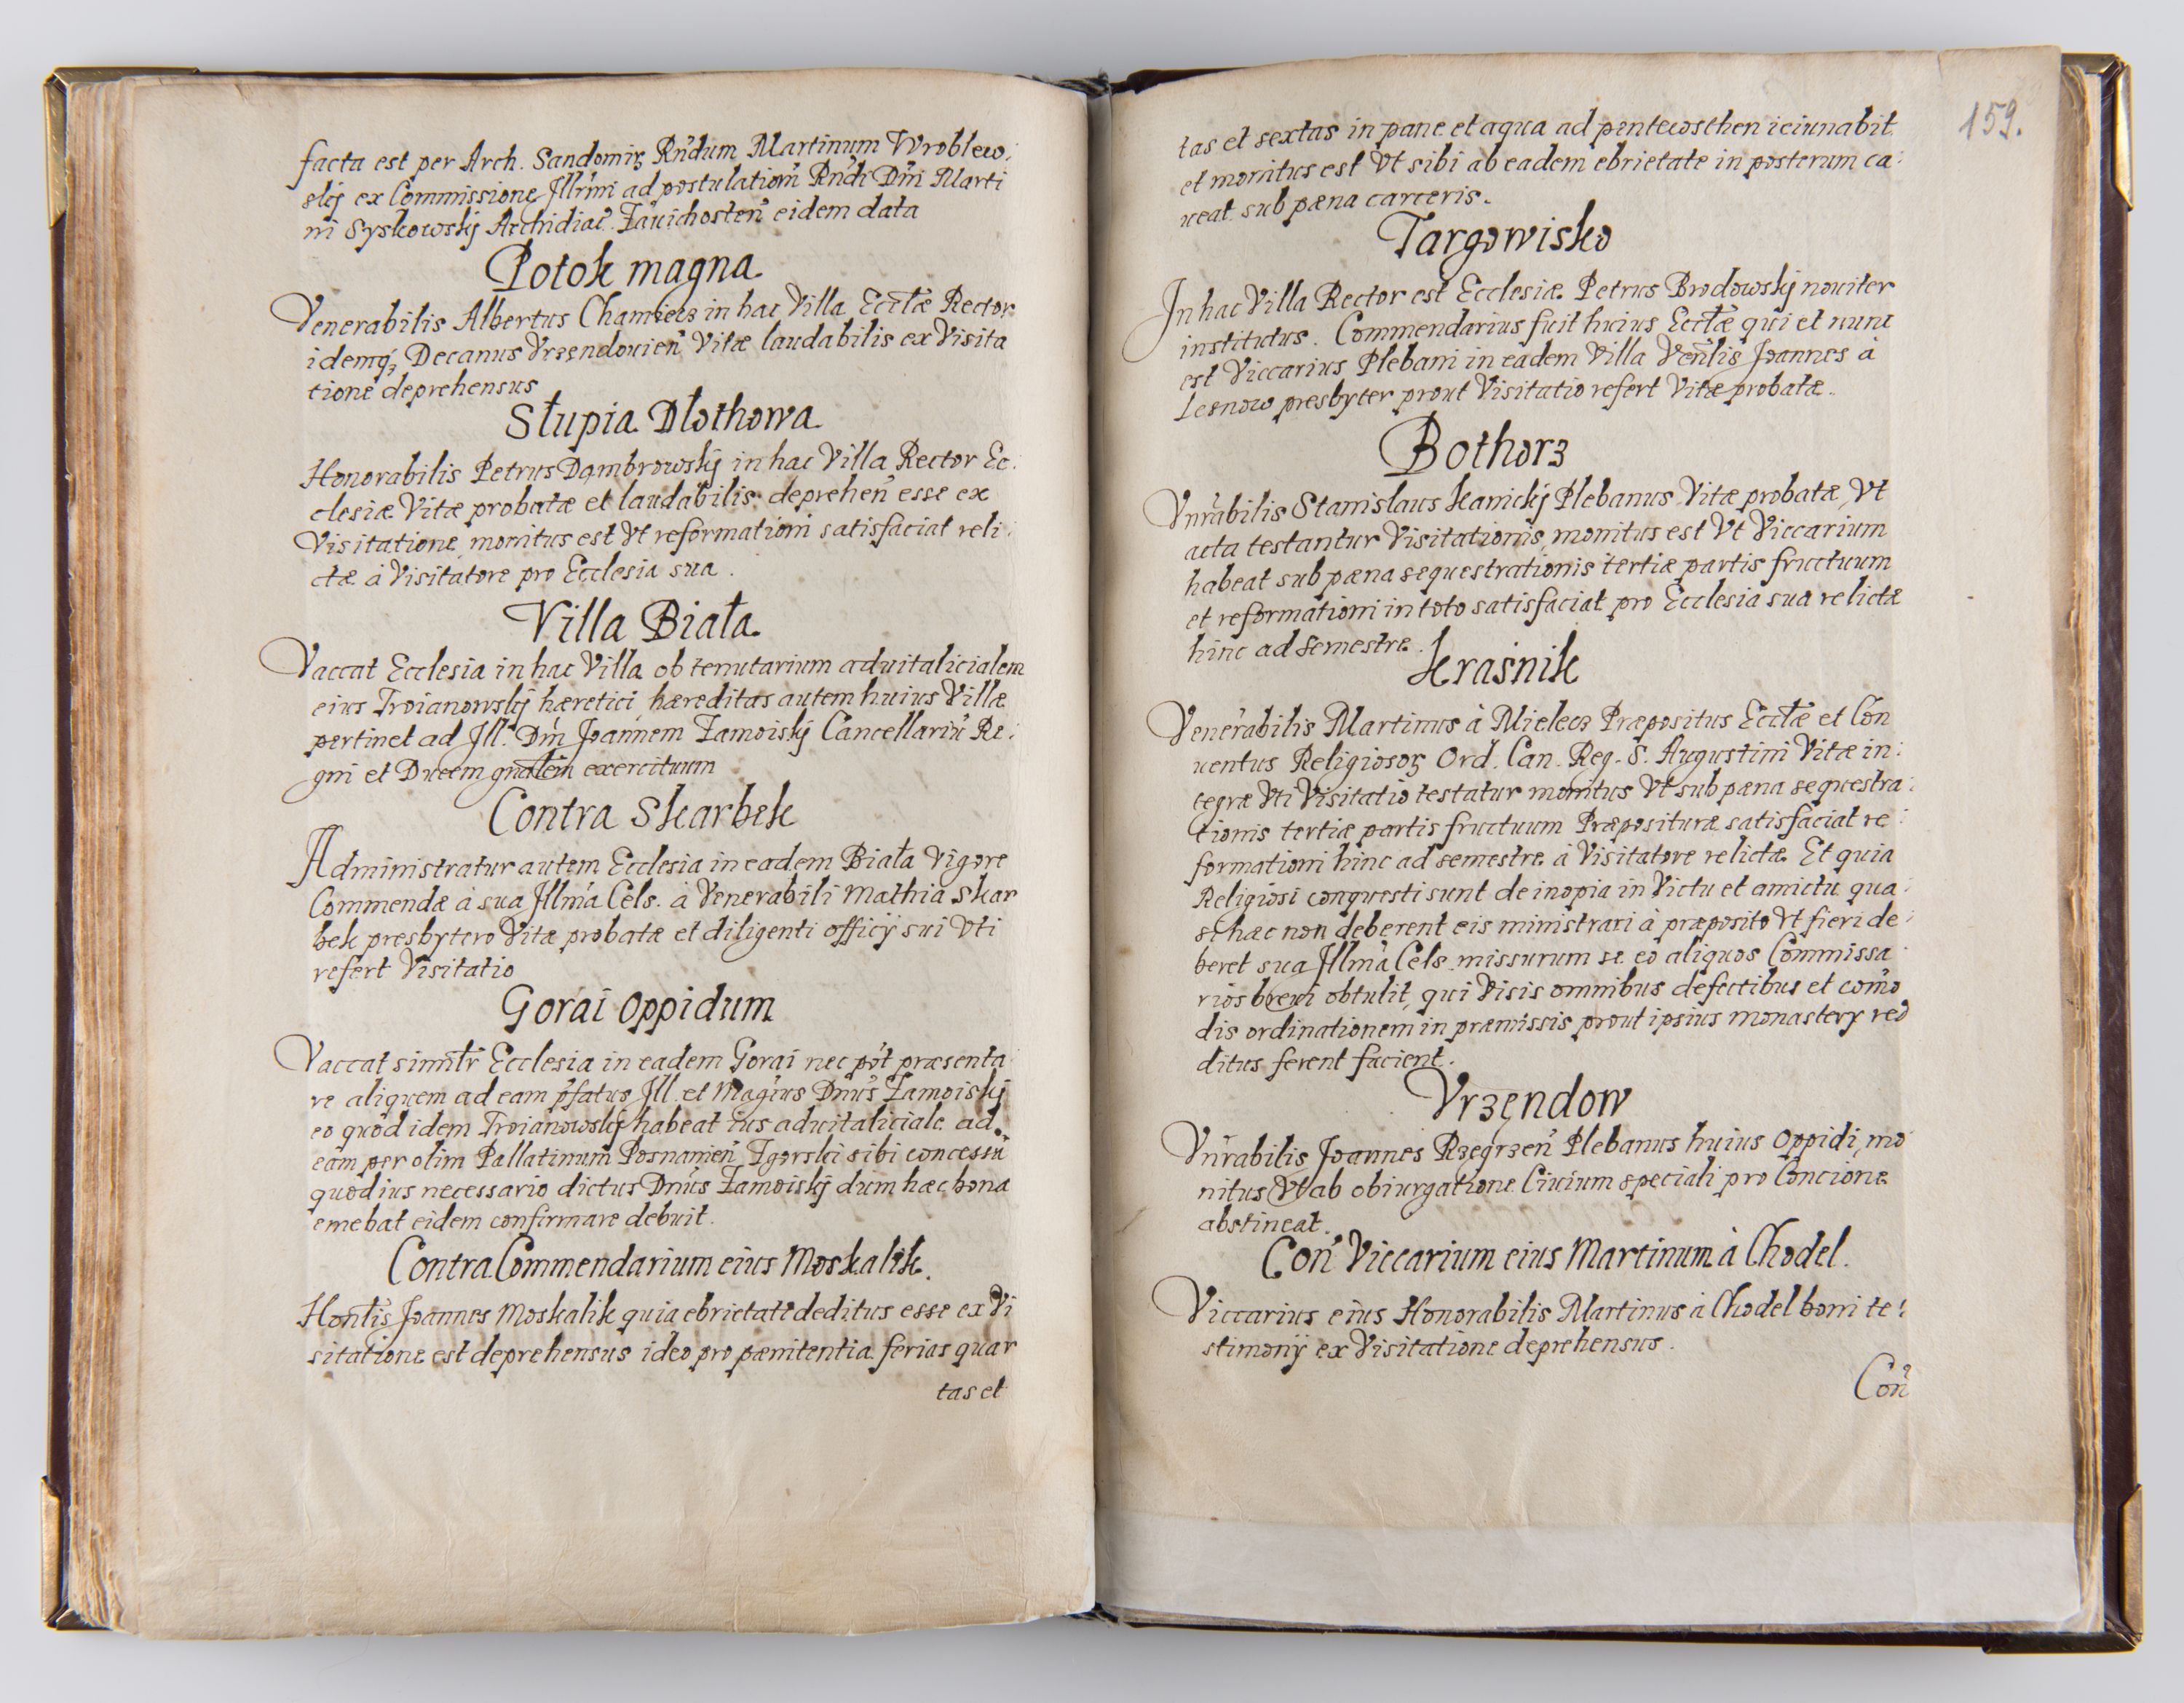 facta est per Arch. Sandomiꝫ Rńdum Martinum Wroblew.
slij ex Commissione Jllrmi ad postulationi Rńdi Dńi Marti
ni Syskowskij Archidiac̃. Zavichosten̄ eidem data
Potok magna
Venerabilis Albertus Chamiecz in hac Villa Eccłæ Rector
idemqꝫ Decanus Vrzendouien̄ Vitæ laudabilis ex Visita
tione deprehensus
Słupia Dłothowa
Honorabilis Petrus Dąmbrowskij in hac Villa Rector Ec:
clesiæ Vitæ probatæ et laudabilis deprehen̄ esse ex
Visitatione, monitus est Vt reformationi satisfaciat reli:
ctæ à Visitatore pro Ecclesia sua.
Villa Biała
Vaccat Ecclesia in hac Villa ob tenutarium aduitalicialem
eius Troianowskij hæretici, hæreditas autem huius Villæ
pertinet ad Jll. Dńm Joannem Zamoiskij Cancellariũ Re:
gni et Ducem gńalem exercituum
Contra Skarbek
Administratur autem Ecclesia in eadem Biała Vigore
Commendæ à sua Jllmá Cels. à Venerabili Mathia Skar
bek presbytero Vitæ probatæ et diligenti officij sui Vti
refert Visitatio
Gorai Oppidum
Vaccat similr̃ Ecclesia in eadem Gorai nec pót præsenta
re aliquem ad eam p̃fatus Jll. et Mag̃cus Dnũs Zamoiskij
eo quòd idem Troianowskij habeat ius aduitaliciale ad
eam per olim Pallatinum Posnanien̄ Zgorski sibi concessũ
quod ius necessario dictus Dnũs Zamoiskij dum hæc bona
emebat eidem confirmare debuit.
Contra Commendarium eius Moskalik.
Honlis̃ Joannes Moskalik quia ebrietati deditus esse ex Vi
sitatione est deprehensus ideo pro pænitentia ferias quar
tas et
159.
tas et sextas in pane et aqua ad pentecosthen ieiunabit
et monitus est Vt sibi ab eadem ebrietate in posterum ca:
ueat sub pæna carceris.
Targowisko
Jn hac Villa Rector est Ecclesiæ Petrus Brodowskij nouiter
institutus. Commendarius fuit huius Eccłæ qui et nunc
est Viccarius Plebani in eadem Villa Venlis̃ Joannes à
Lesnow presbyter prout Visitatio refert Vitæ probatæ.
Bothorz
Vnrãbilis Stanislaus Kanickij Plebanus Vitæ probatæ, Vt
acta testantur Visitationis, monitus est Vt Viccarium
habeat sub pæna sequestrationis tertiæ partis fructuum
et reformationi in toto satisfaciat pro Ecclesia sua relictæ
hinc ad semestre.
Kraśnik
Venerabilis Martinus à Mielecz Præpositus Eccłæ et Con
uentus Religiosoꝝ Ord. Can. Reg. S. Augustini Vitæ in:
tegræ Vti Visitatio testatur monitus Vt sub pæna sequestra:
tionis tertiæ partis fructuum Præposituræ satisfaciat re:
formationi hinc ad semestre à Visitatore relictæ. Et quia
Religiosi conquesti sunt de inopia in Victu et amictu qua:
si hæc non deberent eis ministrari à præposito Vt fieri de:
beret sua Jllmá Cels. missurum se eò aliquos Commissa:
rios breui obtulit, qui Visis omnibus defectibus et com̃o
dis ordinationem in præmissis prout ipsius monasterÿ red
ditus ferent facient.
Vrzendow
Vnrãbilis Joannes Rzegrzen̄ Plebanus huius Oppidi, mo
nitus Vt ab obiurgatione Ciuium speciali pro Concione
abstineat.
Con̄ Viccarium eius Martinum à Chodel.
Viccarius eius Honorabilis Martinus à Chodel boni te:
stimonij ex Visitatione deprehensus.
Con̄